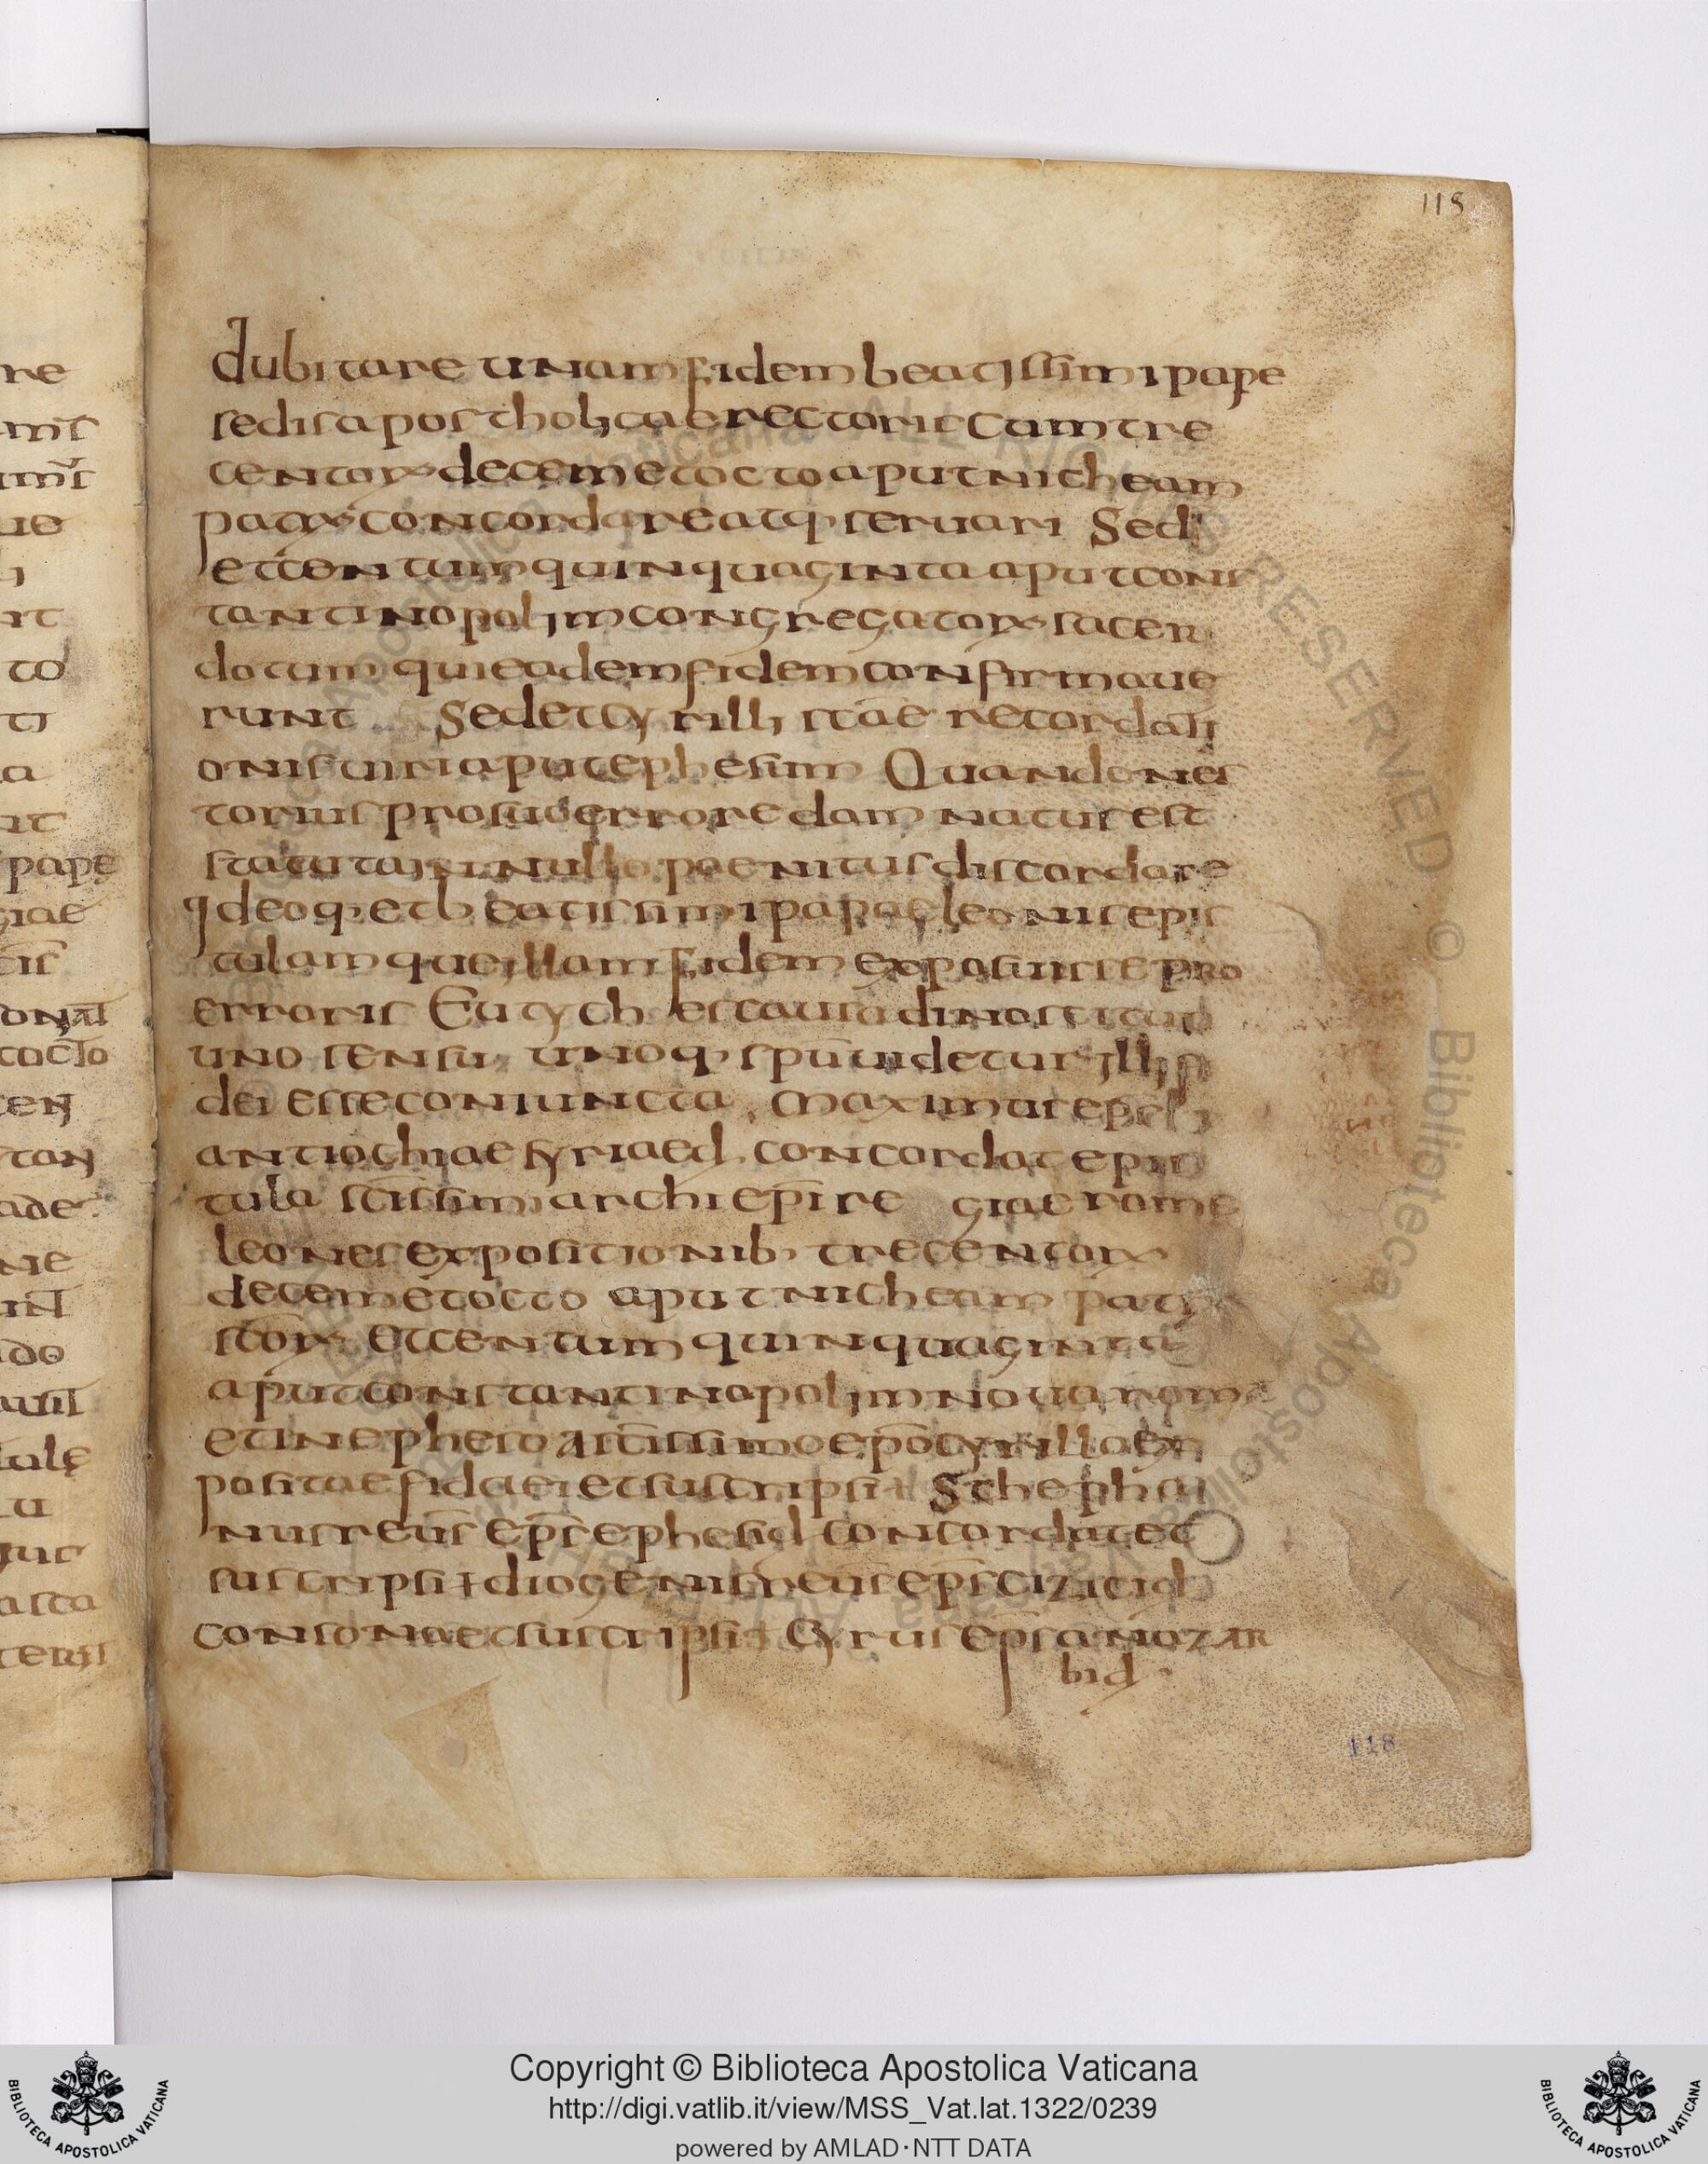 115
dubitare unam fidem beatissimi pape
sedis apostholicae rectoris cum tre
centoꝝ decem et octo aput nicheam
patrꝝ concordare atq· servari Sed
et centum quinquaginta aput cons
tantinopolim congregatoꝝ sacer
dotum qui eadem fidem confirmave
runt Sed et cyrilli scae recordati
onis viri aput ephesim Quando nes
torius pro suo errore damnatus est
statuta in nullo poenitus discordare
ideoq· et beatissimi papae leonis epis
tulam que illam fidem exposuisse pro
erroris Eutyches causa dinoscitur
uno sensu, unoq· spu videtur illis
dei esse coniuncta, Maximus eps
antiochiae syriae d. concordat epis
tula scissimi archiepi regiae rome
leones expositionib· trecentoꝝ
decem et octo aput nicheam patrꝝ
scoꝝ et centum quinquaginta
aput constantinopolim nova roma
et in epheso a scissimo epo cyrillo ex
positae fidaei et suscripsi Sthepha
nus reus eps ephesi d concordat et
suscripsit diogenis reus eps cizici d
consona et suscripsit Cyrus eps anozar
bi d·
118
pape
giae
Copyright © Biblioteca Apostolica Vaticana
http://digi.vatlib.it/view/MSS_Vat.lat.1322/0239
powered by AMLAD·NTT DATA
BIBLIOTECA APOSTOLICA VATICANA
BIBLIOTECA APOSTOLICA VATICANA